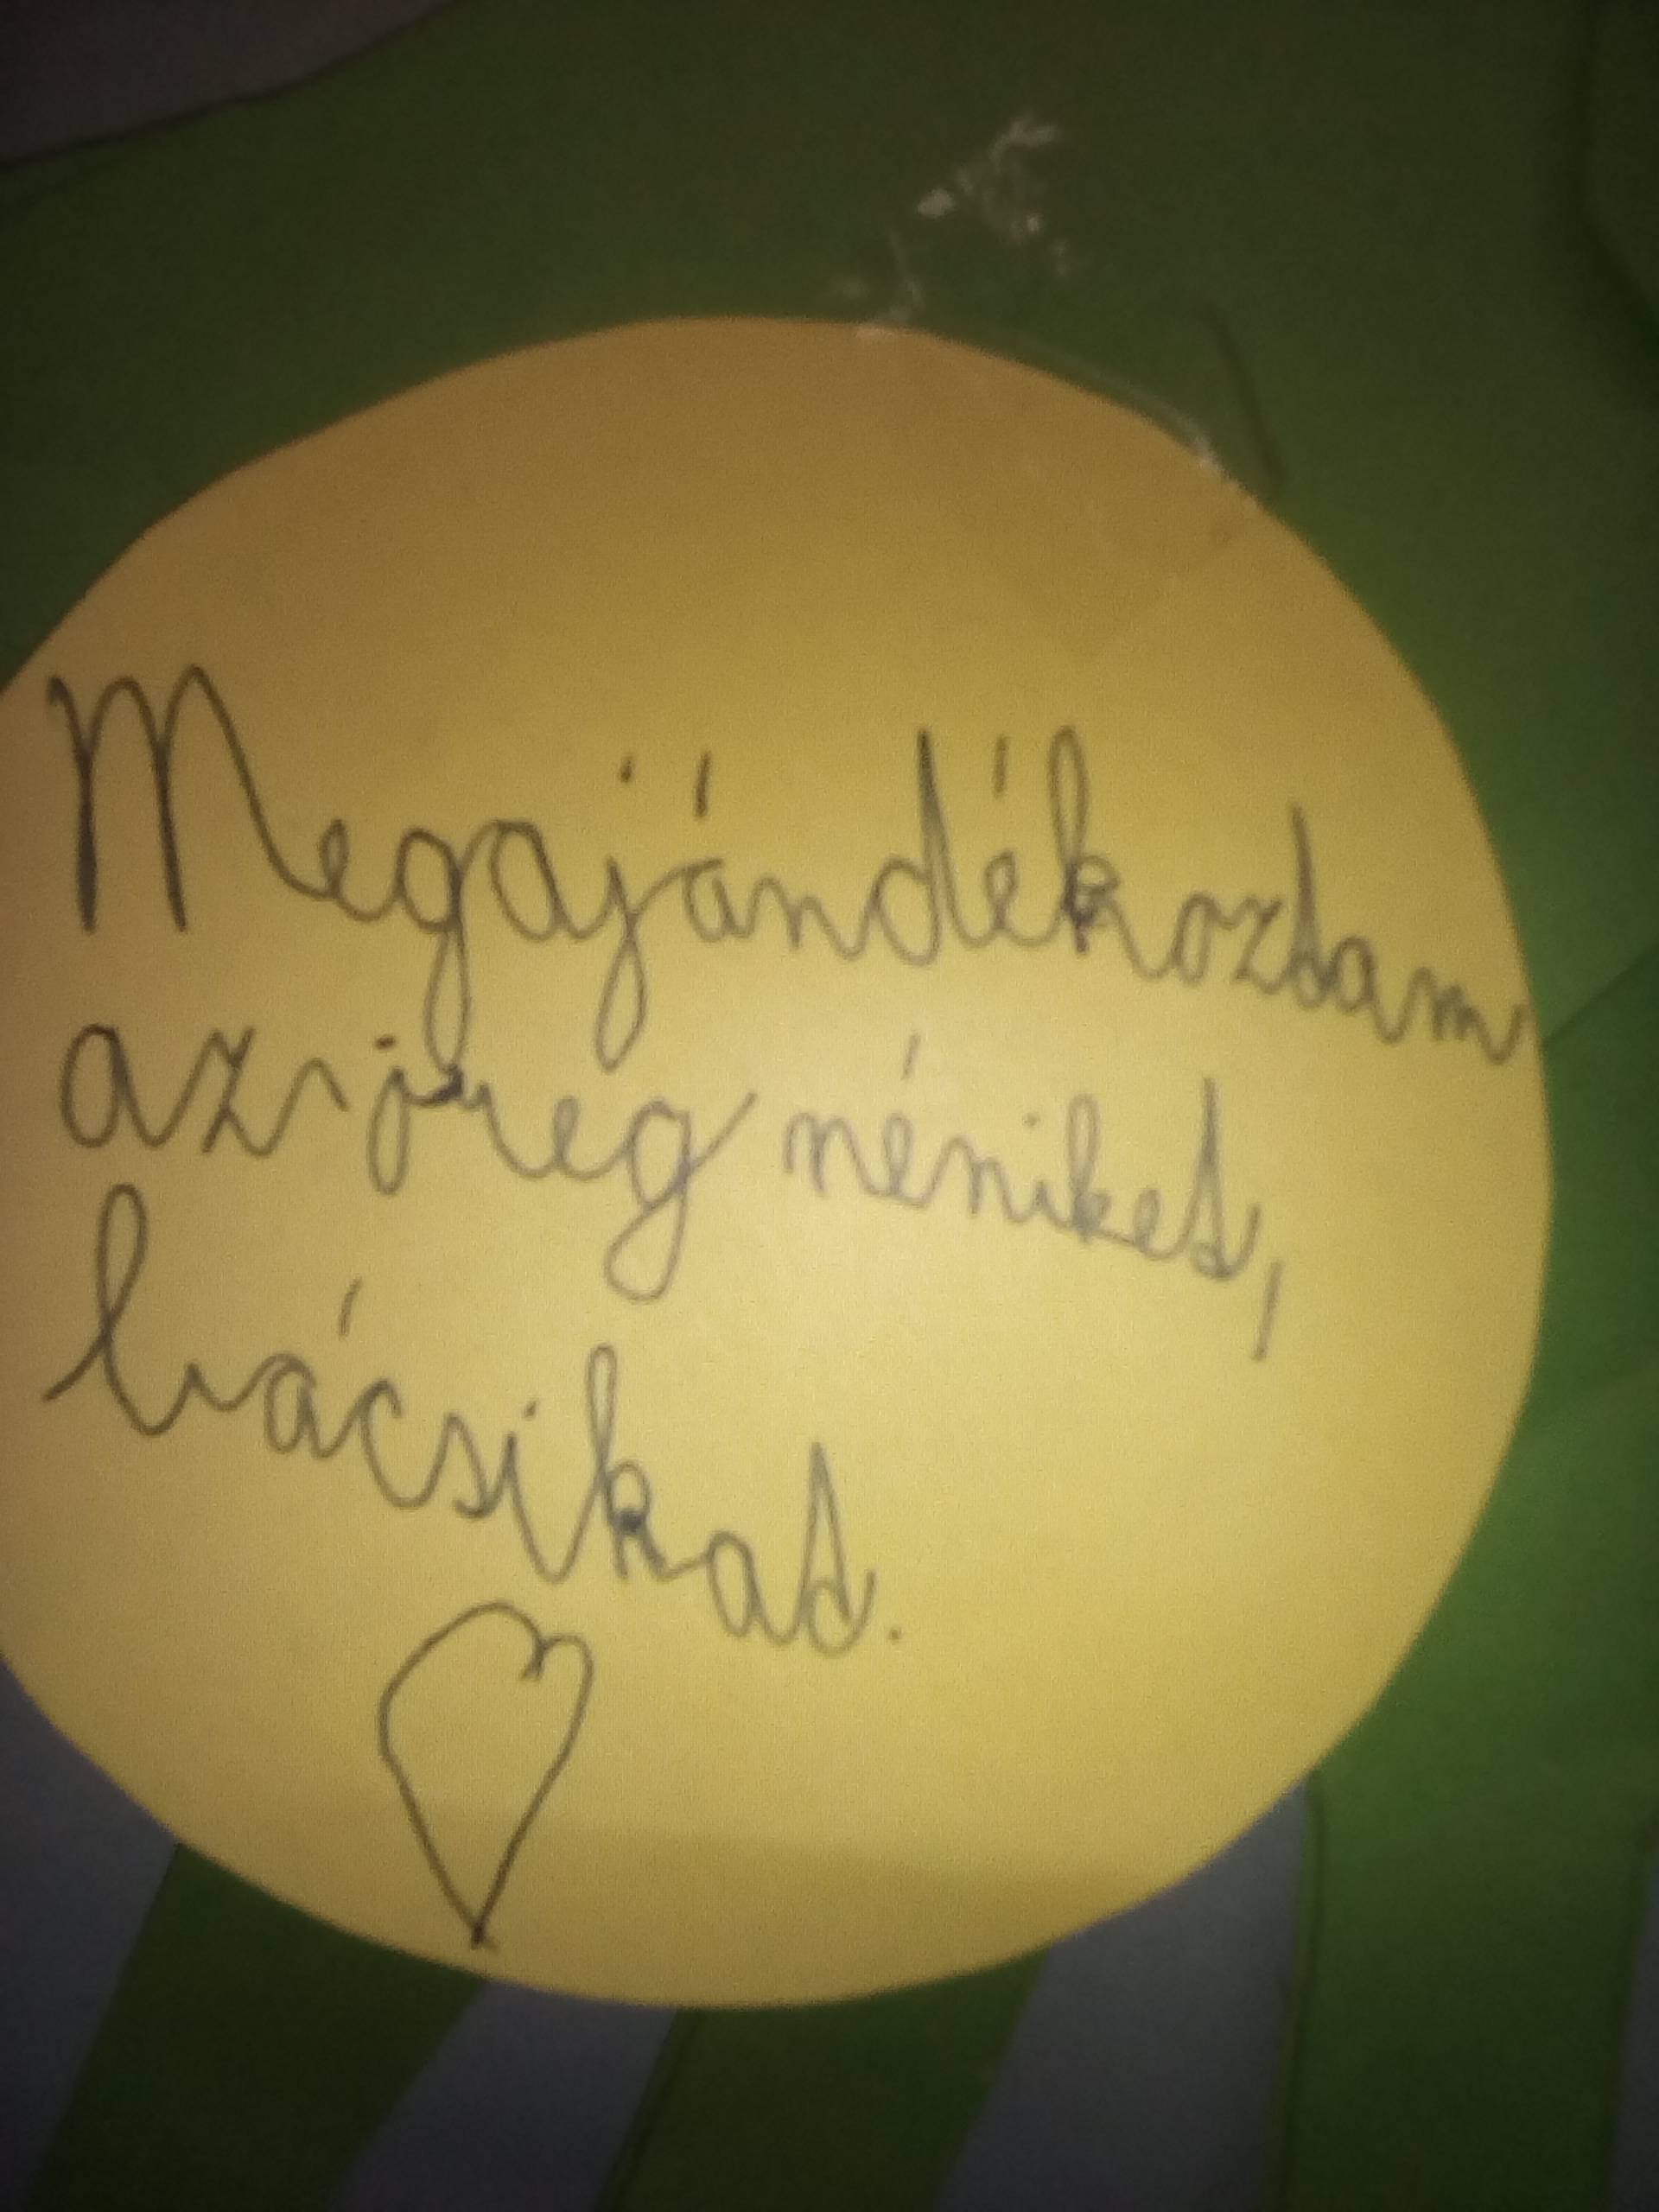 Megajándékoztam
az öreg néniket,
bácsikat.